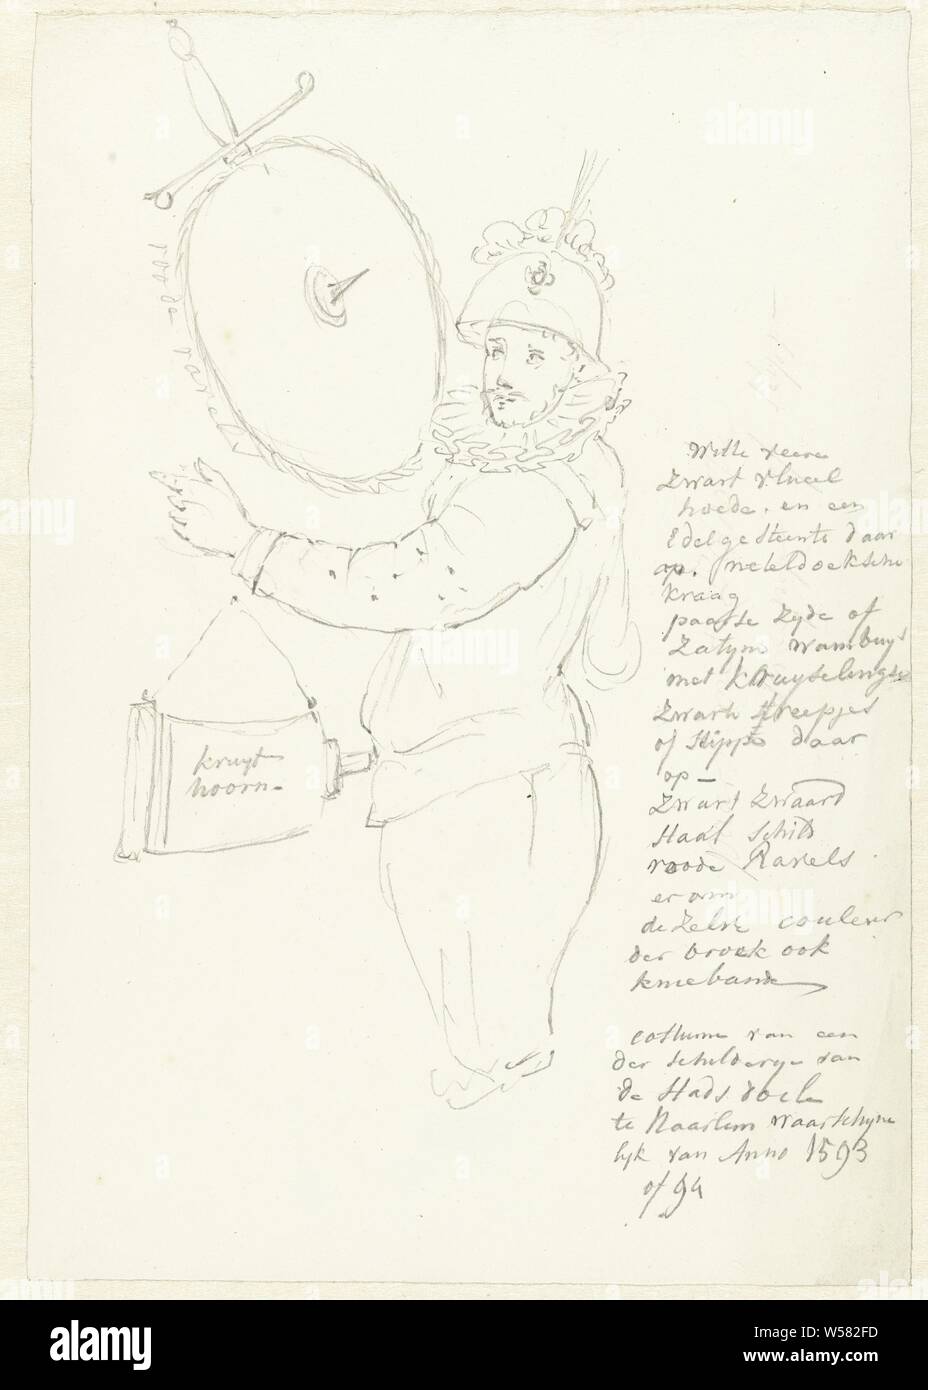 roode
kruyt
hoorn -
Witte veeren
Zwart vlueel
hoede. en een
Edelgesteente daar
op. neteldoeksche
kraag
paarse Zyde of
Zatyne wambuys
met kruyselingse
Zwarte streepjes
of stippe daar
op -
Zwart Zwaard
Staal Schild
roode Ravels
er om
de Zelve couleur
der broek ook
kniebande
costume van een
der schilderye van
de Stads doele
te Haarlem waarschyne
lyk van Anno 1593
of 94
alamy
Image ID: W582FD
www.alamy.com